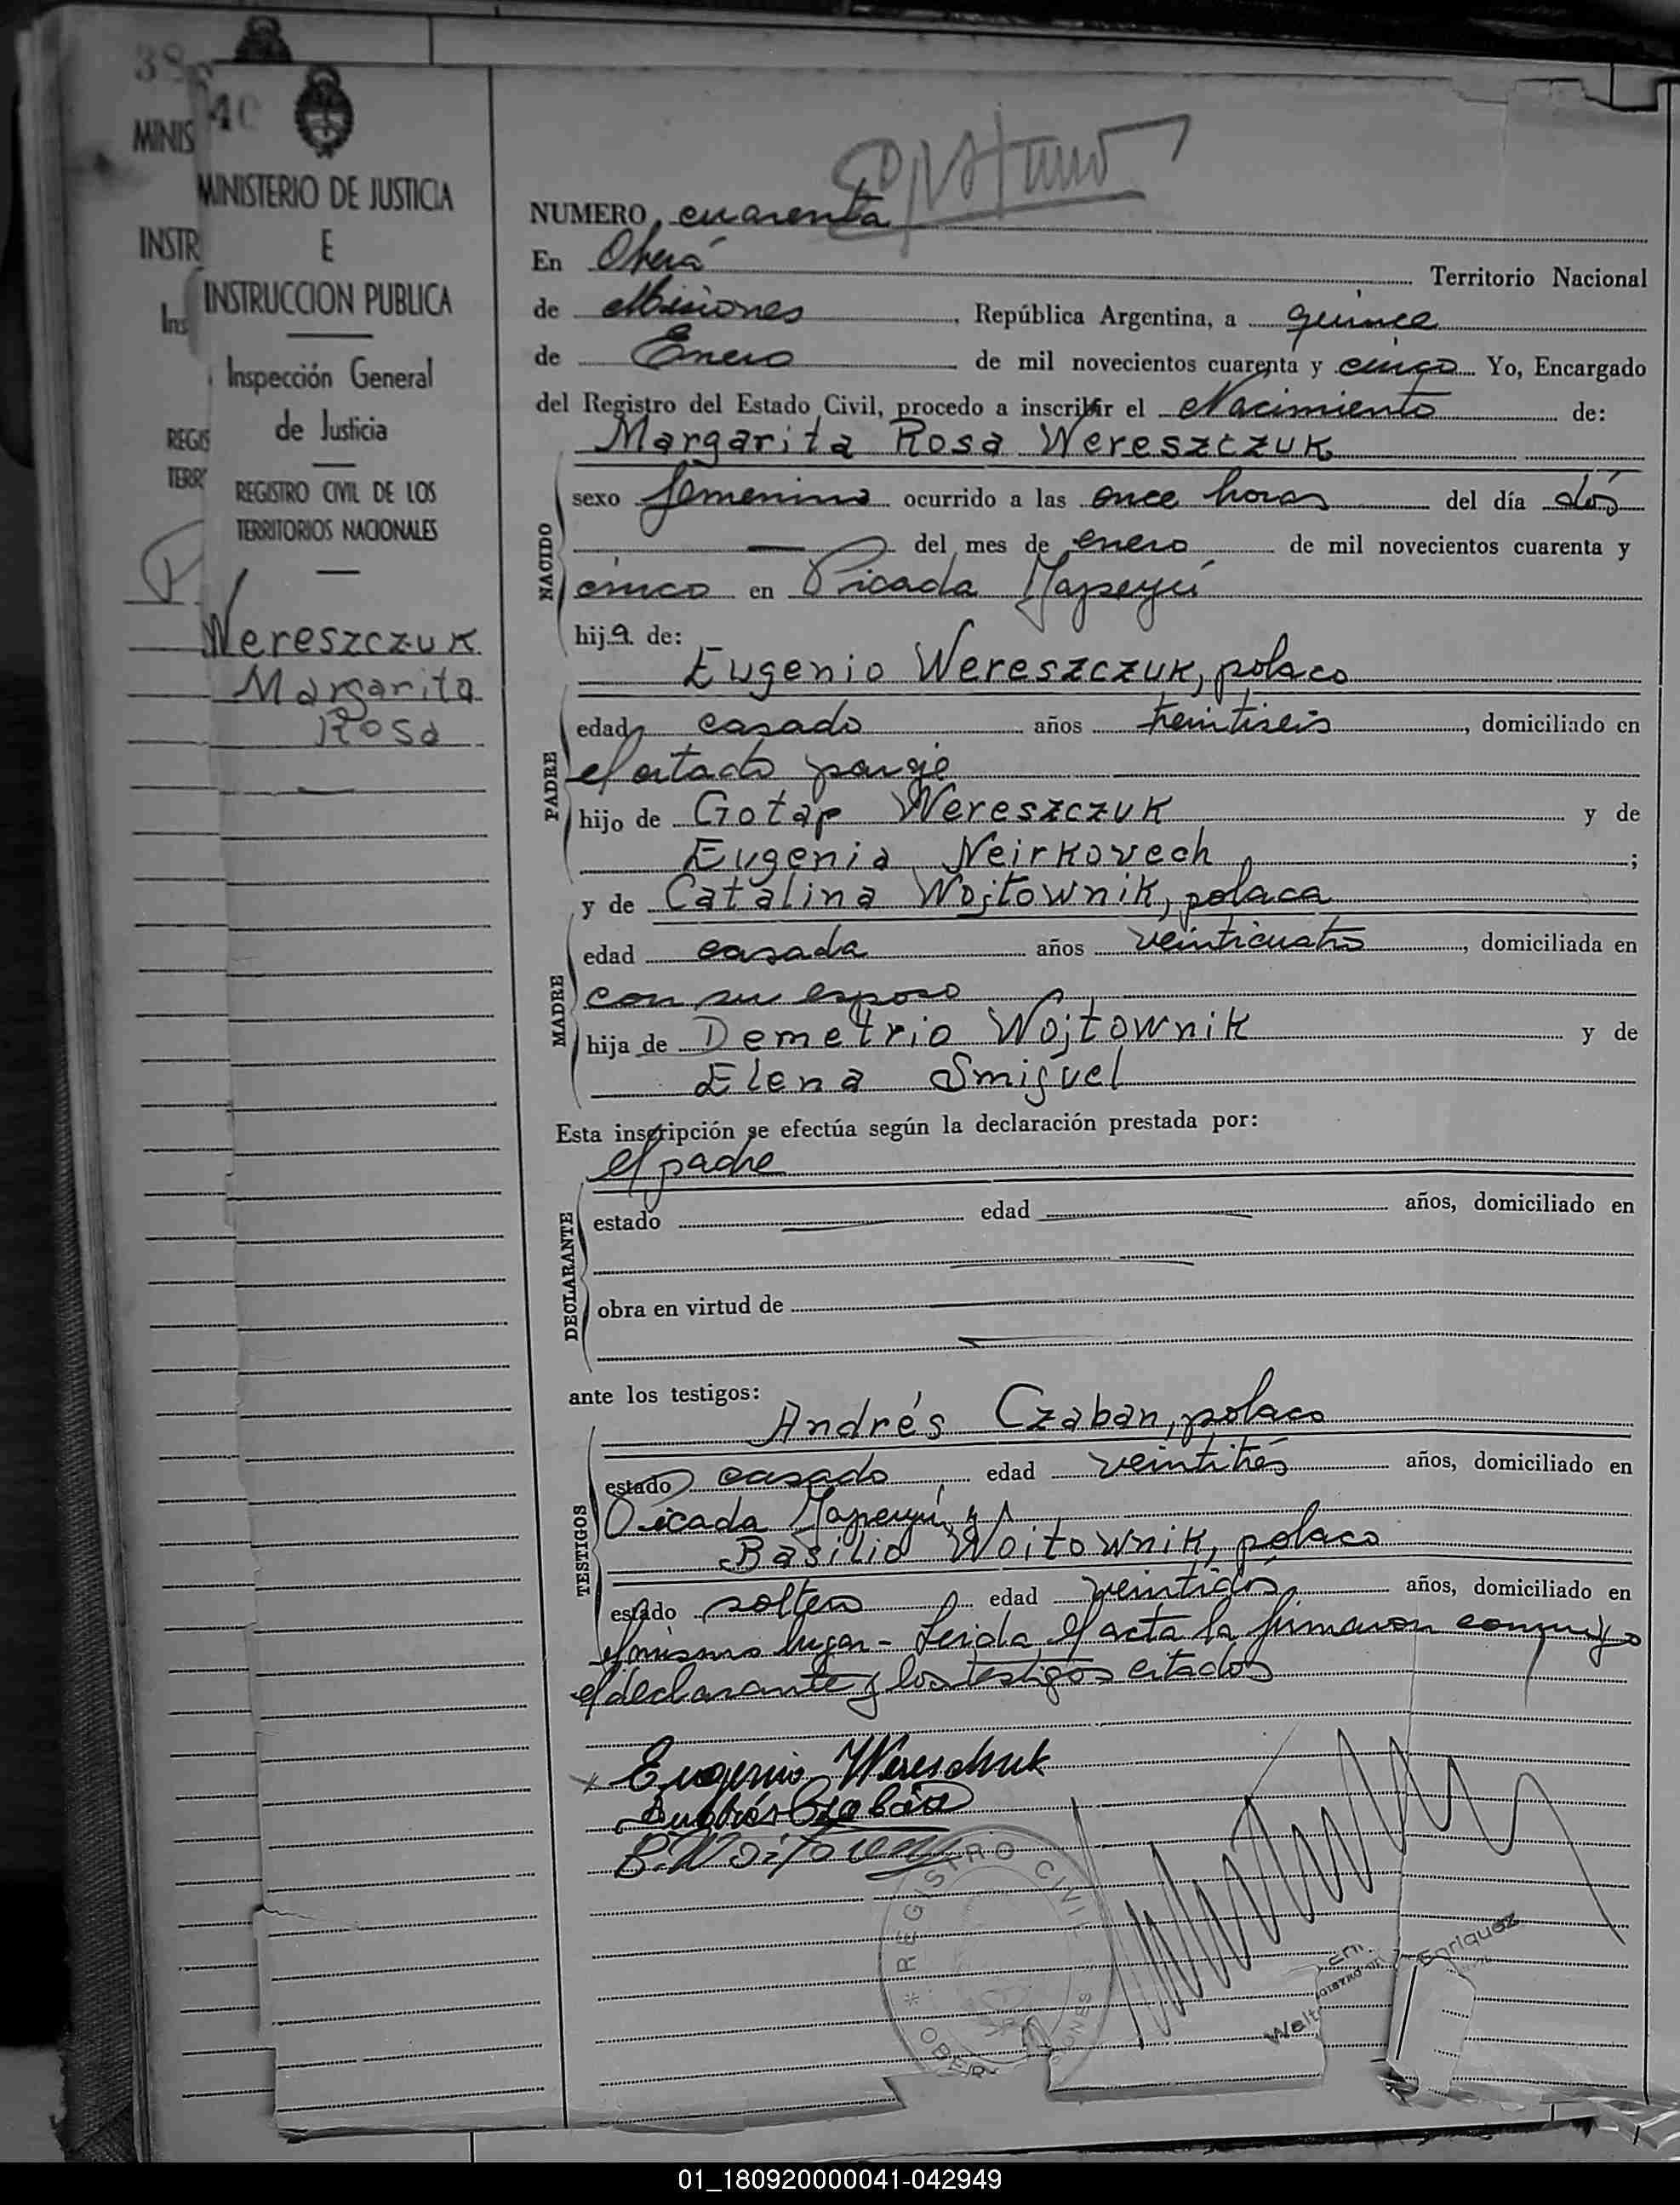 38
40
MINIS
MINISTERIO DE JUSTICIA
INSTR
E
INSTRUCCION PUBLICA
Ins
Inspección General
de Justicia
REGIS
REGISTRO CIVIL DE LOS
TERR
TERRITORIOS NACIONALES
Wereszczuk
Margarita
Rosa
NUMERO cuarenta
En Oberá Territorio Nacional
de Misiones, República Argentina, a quince
de Enero de mil novecientos cuarenta y cinco Yo, Encargado
del Registro del Estado Civil, procedo a inscribir el Nacimiento de:
Margarita Rosa Wereszczuk
NACIDO
sexo femenino ocurrido a las once horas del día dós
del mes de enero de mil novecientos cuarenta y
cinco en Picada Yapeyú
hija de:
Eugenio Wereszczuk, polaco
PADRE
edad casado años treintiseis, domiciliado en
el citado paraje
hijo de Gotap Wereszczuk y de
Eugenia Neirkovech;
y de Catalina Wojtownik, polaca
MADRE
edad casada años veinticuatro, domiciliada en
con su esposo
hija de Demetrio Wojtownik y de
Elena Smiguel
Esta inscripción se efectúa según la declaración prestada por:
el padre
DECLARANTE
estado edad años, domiciliado en
obra en virtud de
ante los testigos:
Andrés Czaban, polaco
TESTIGOS
estado casado edad veintitrés años, domiciliado en
Picada Yapeyú, y
Basilio Woitownik, polaco
estado soltero edad veintidós, años, domiciliado en
el mismo lugar - Leida el acta la firmaron conmigo
el declarante y los testigos citados
Eugenio Wereschuk
Andrés Czaban
B. Woitowni
REGISTRO CIVIL
OBERA
Enriquez
01_180920000041-042949